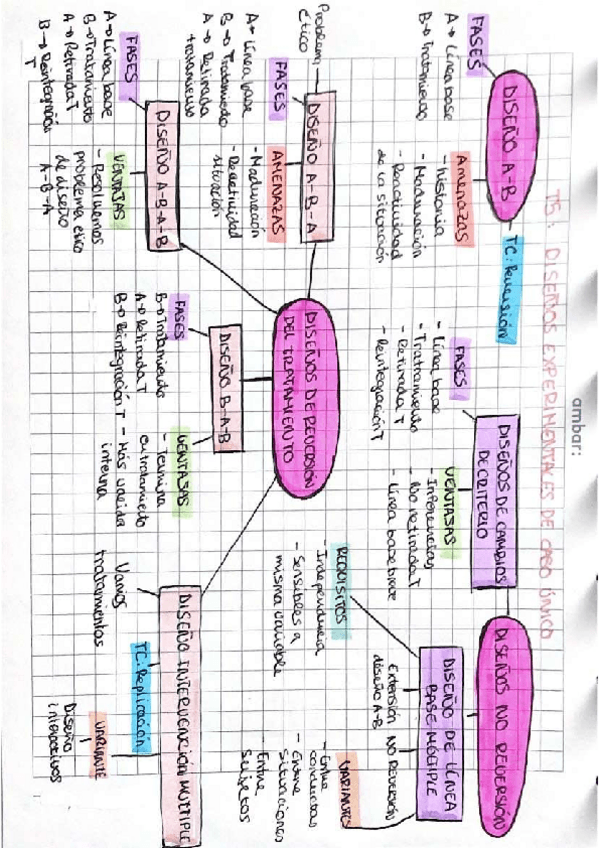 ambar:
T5: DISEÑOS EXPERIMENTALES DE CASO ÚNICO
DISEÑO A-B
TC: Reversión
FASES
A → Línea base
B → Tratamiento
Amenazas
- historia
- Maduración
- Reactividad
de la situación
DISEÑOS DE CAMBIOS
DE CRITERIO
FASES
- Línea base
- Tratamiento
- Retirada T
- Reintegración T
VENTAJAS
- Inferencias
- No retirada T
- Línea base breve
DISEÑOS NO REVERSIÓN
DISEÑO DE LÍNEA
BASE MÚLTIPLE
Extensión NO REVERSIÓN
diseño A-B
REQUISITOS
- Independencia
- Sensibles a
misma variable
VARIANTES
- Entre
conductas
- Entre
situaciones
- Entre
Sujetos
DISEÑOS DE REVERSIÓN
DEL TRATAMIENTO
DISEÑO A-B-A
Problema
ético
FASES
A → Línea base
B → Tratamiento
A → Retirada
tratamiento
AMENAZAS
- Maduración
- Reactividad
situación
DISEÑO A-B-A-B
FASES
A → Línea base
B → Tratamiento
A → Retirada T
B → Reintegración
T
VENTAJAS
- Resolvemos
problema ético
de diseño
A-B-A
DISEÑO B-A-B
FASES
B → Tratamiento
A → Retirada T
B → Reintegración T
VENTAJAS
- Termina
en tratamiento
- Más validez
interna
DISEÑO INTERVENCIÓN MÚLTIPLE
Varios
tratamientos
TC: Replicación
VARIANTE
Diseño
interactivos